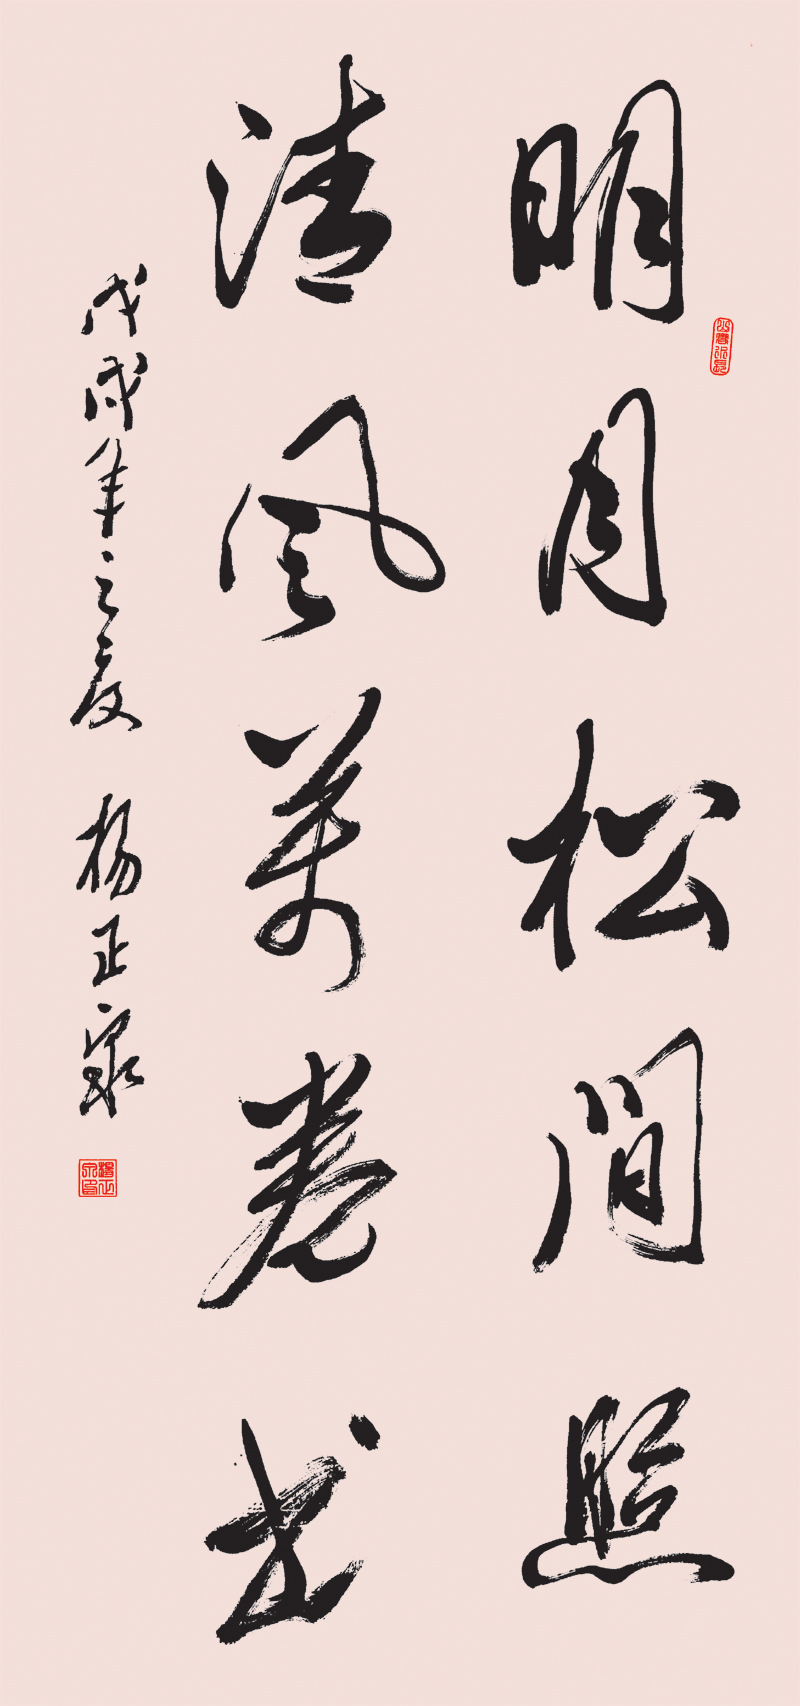 明月松间照
清风万卷书
戊戌年之夏 杨正泉